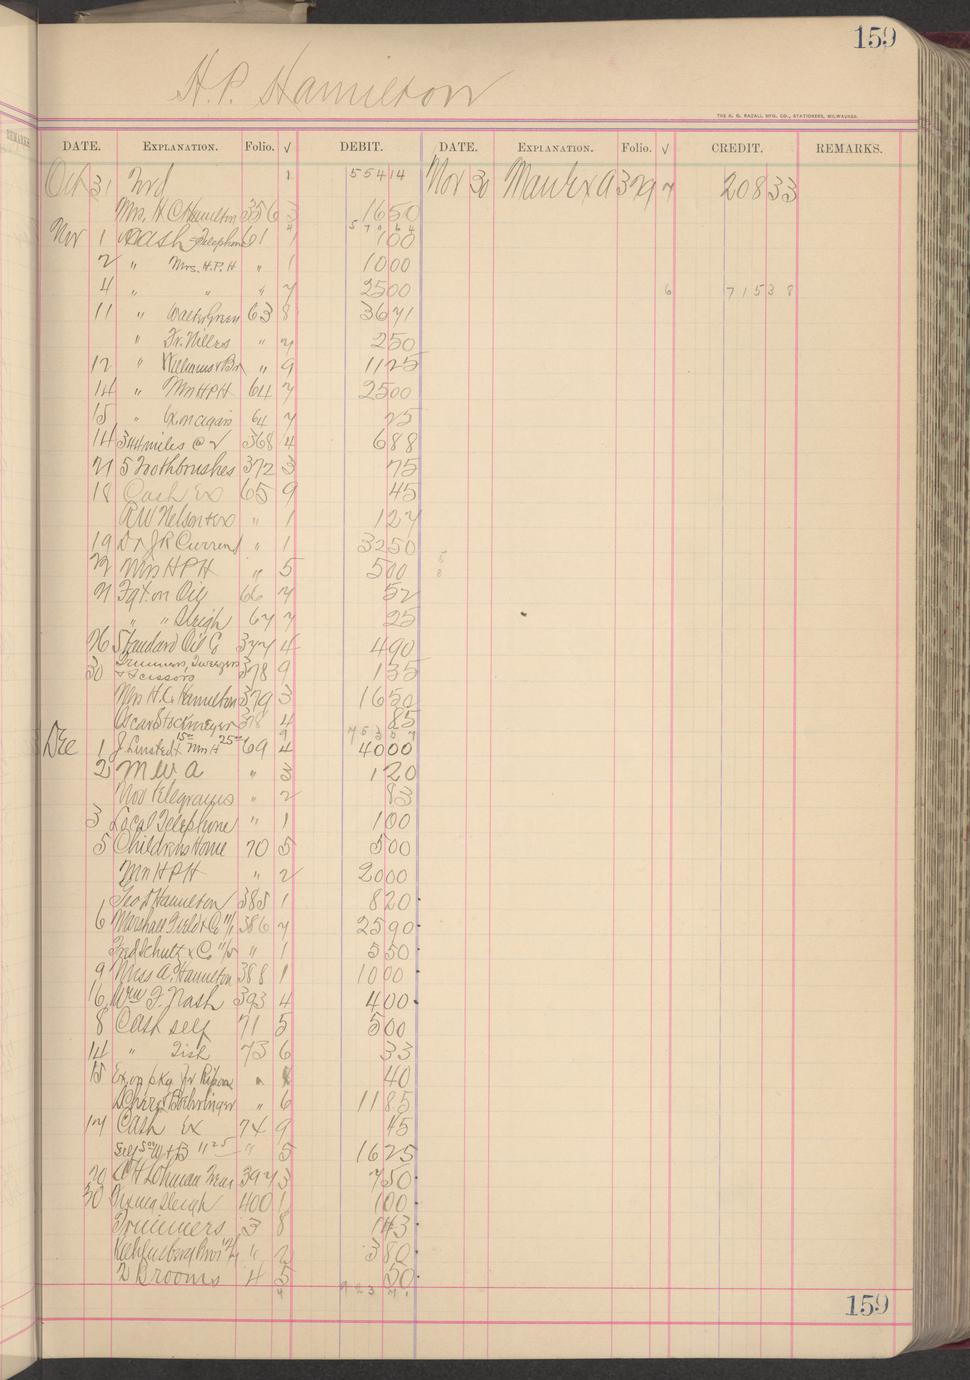 159
H.P. Hamilton
THE A. G. RAZALL MFG. CO., STATIONERS, MILWAUKEE.
DATE. EXPLANATION. Folio. √ DEBIT. DATE. EXPLANATION. Folio. √ CREDIT. REMARKS.
Oct 31 Ford 1 55414 Nov 30 Manf Ex A 379 7 20833
Mrs. H C Hamilton 356 3 1650
4 57064
Nov 1 Cash Telephone 61 1 100
2 " Mrs. H.P.H " 1 1000
4 " " " 7 2500 6 71538
11 " Walter Green 63 8 3671
" Fr. Millers " 7 250
12 " Williams & Bro " 9 1125
14 " Mrs HPH 64 7 2500
15 " Ex on cigars 64 7 25
14 344 miles @ 2 368 4 688
21 5 Toothbrushes 372 3 75
18 Cash Ex 65 9 45
R W Nelson & Co " 1 127
19 Dr J R Currens " 1 3250
22 Mrs H P H " 5 500
21 Fgt on Oil 66 7 52
" " Sleigh 67 7 25
26 Standard Oil Co 377 4 490
30 Trimmers, Tweezers & Scissors 378 9 135
Mrs H.C. Hamilton 379 3 1650
Oscar Stockmeyer 378 4 85
9 75357
Dec 1 J Linstedt 1500 Mrs H 2500 69 4 4000
2 M W A " 3 120
Nov telegrams " 2 83
3 Local Telephone " 1 100
5 Childrens Home 70 5 500
Mrs H P H " 2 2000
Geo S Hamilton 385 1 820
6 Marshall Field & Co 11/1 386 7 2590
Fred Schultz & Co " 1 550
9 Miss A. Hamilton 388 1 1000
16 Wm F. Nash 393 4 400
8 Cash self 71 5 500
14 " Fish 73 6 33
15 Ex on pkg fr Ripon " 40
" 6 1185
17 Cash Ex 74 9 45
" 5 1625
20 397 3 750
30 Sleigh 400 1 100
Trimmers 3 8 143
" 2 380
2 Brooms 4 5 50
159